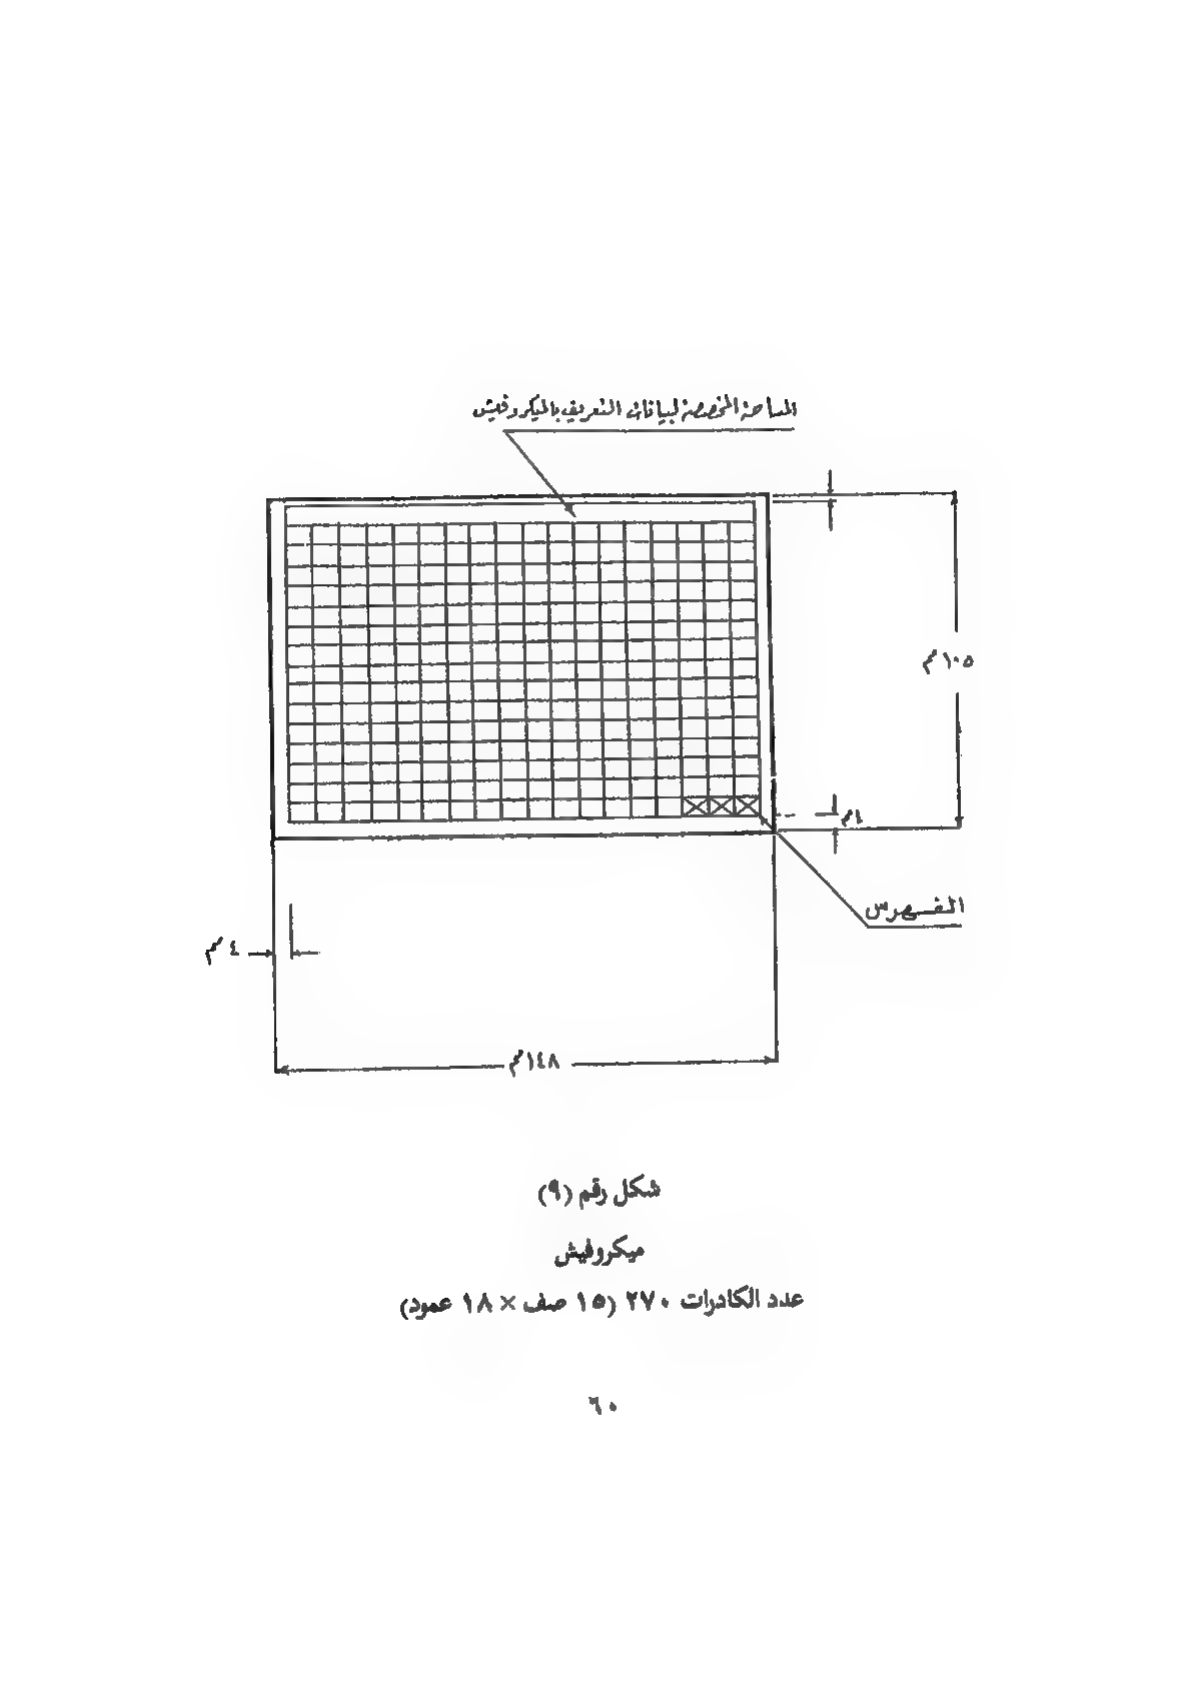 المساحة المخصصة لبيانات التعريف بالميكروفيش
١٠٥ مم
٤ مم
الفهرس
٤ مم
١٤٨ مم
شكل رقم (٩)
ميكروفيش
عدد الكادرات ٢٧٠ (١٥ صف × ١٨ عمود)
٦٠